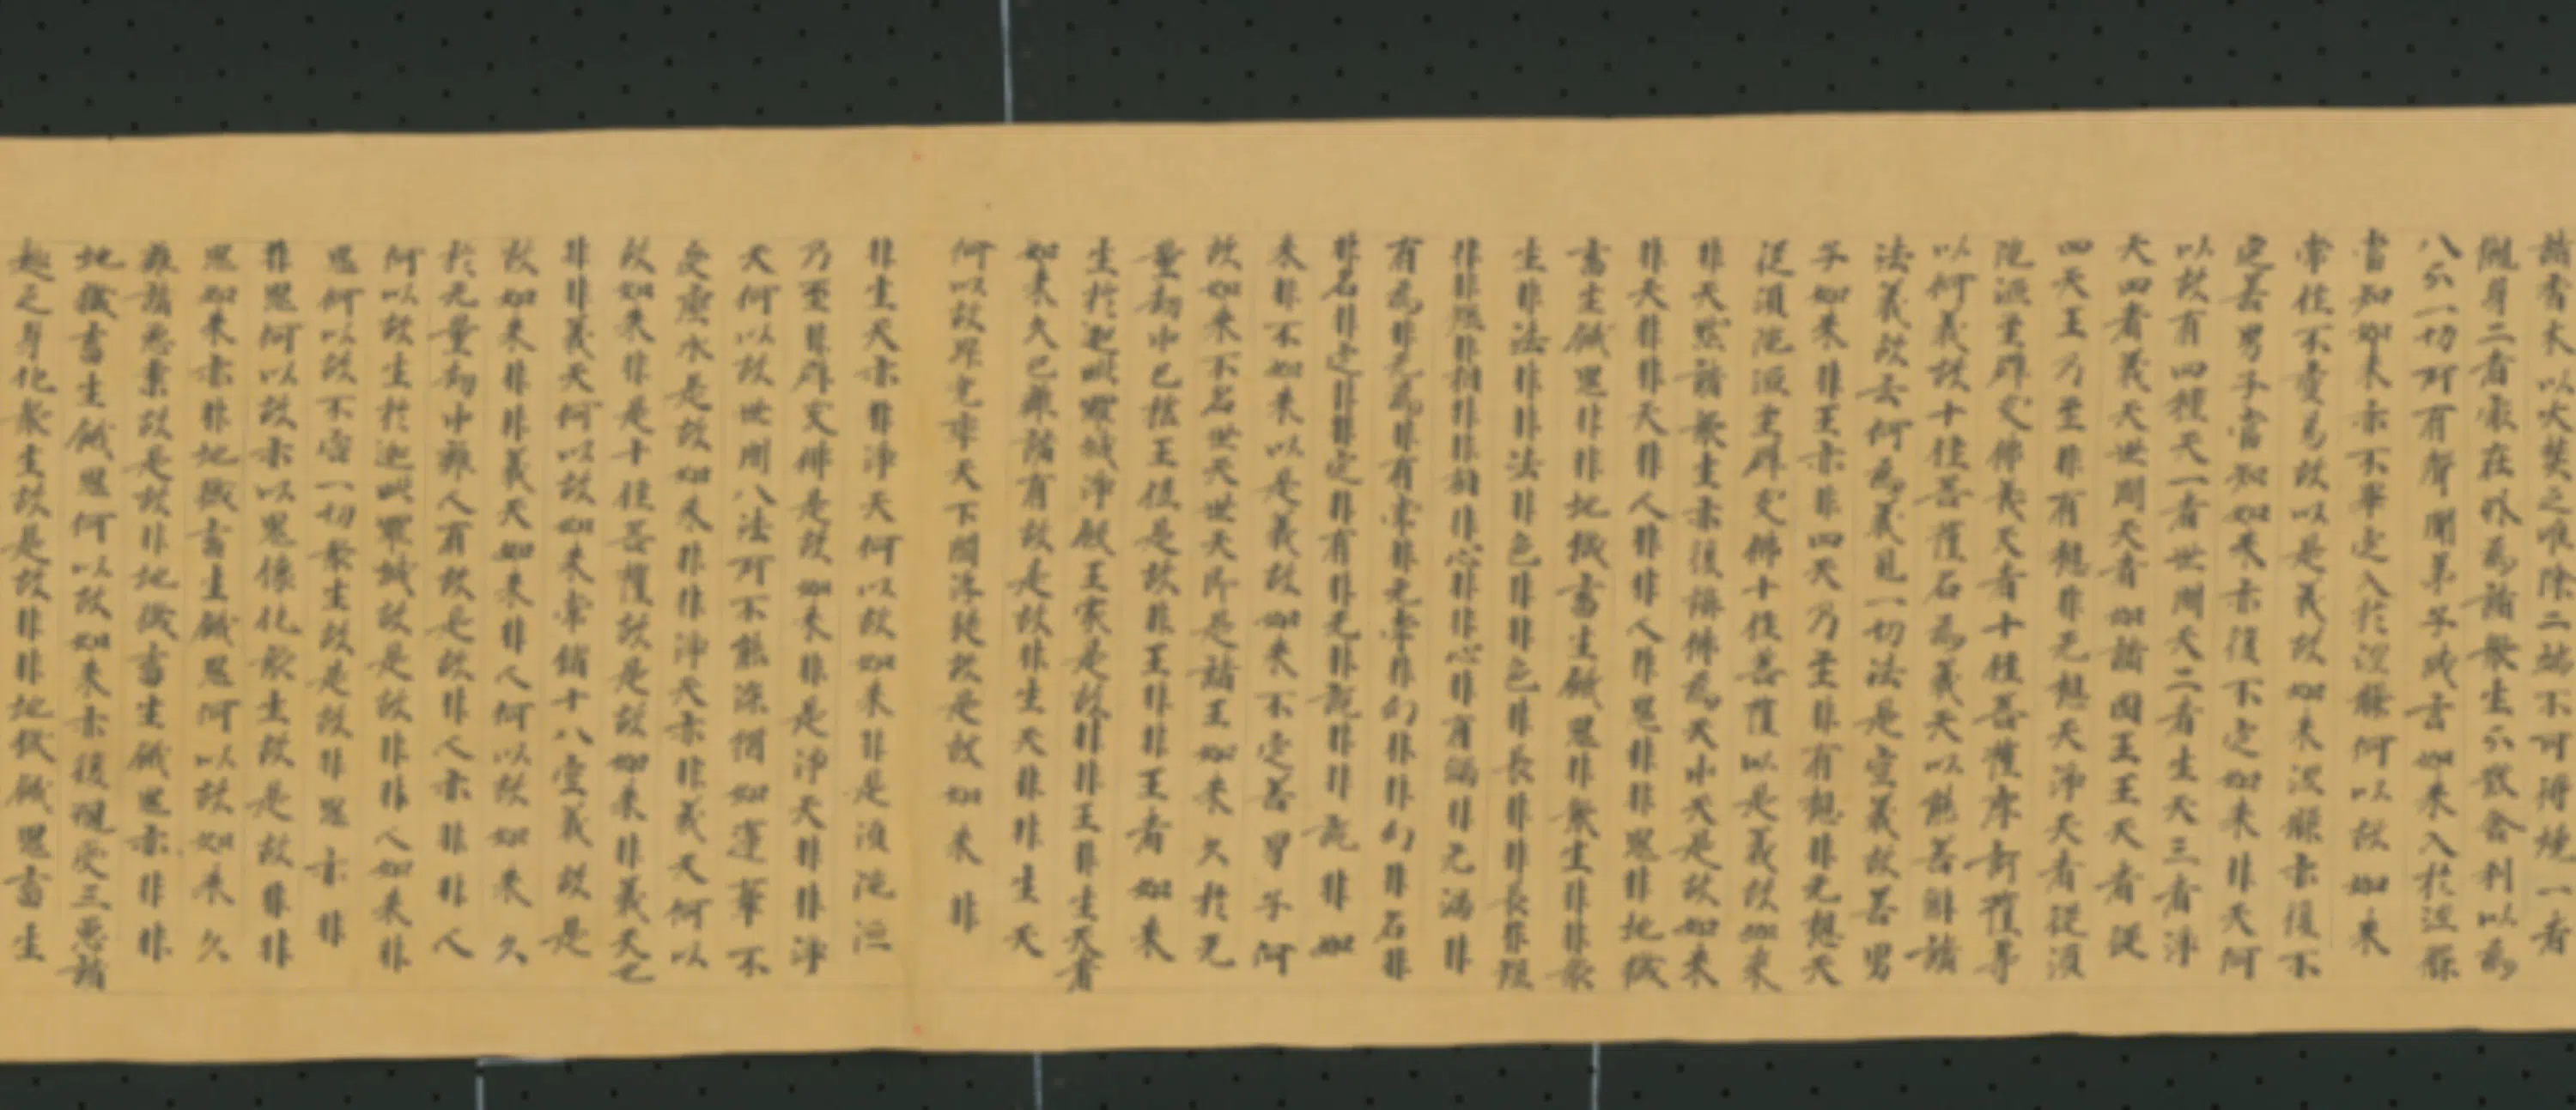 諸香木以火焚之唯除二端不可得燒一者
儭身二者最在外為諸衆生分散舍利以為
八分一切所有聲聞弟子咸言如來入於涅槃
當知如來亦不畢定入於涅槃何以故如來
常住不變易故以是義故如來涅槃亦復不
定善男子當知如來亦復不定如來非天何
以故有四種天一者世間天二者生天三者淨
天四者義天世間天者如諸國王王天者從
四天王乃至非有想非无想天淨天者從須
陀洹至辟支佛義天者十住菩薩摩訶薩等
以何義故十住菩薩名為義天以能善解諸
法義故云何為義見一切法是空義故善男
子如來非王亦非四天乃至非有想非无想天
從須陀洹至辟支佛十住菩薩以是義故如來
非天然諸衆生亦復稱佛為天中天是故如來
非天非非天非人非非人非鬼非非鬼非地獄
畜生餓鬼非非地獄畜生餓鬼非衆生非非衆
生非法非非法非色非非色非長非非長非短
非非短非相非非相非心非非心非有漏非无漏非
有為非无為非有常非无常非幻非非幻非名非
非名非定非非定非有非无非說非非說非如
來非不如來以是義故如來不定善男子何
故如來不名世天世天即是諸王如來久於无
量劫中已捨王位是故非王非非王者如來
生於迦毗羅城淨飯王家是故非非王非生天者
如來久已離諸有故是故非生天非非生天
何以故昇兜率天下閻浮提故是故如來非
非生天亦非淨天何以故如來非是須陀洹
乃至非辟支佛是故如來非是淨天非非淨
天何以故世間八法所不能染猶如蓮華不
受塵水是故如來非非淨天亦非義天何以
故如來非是十住菩薩故是故如來非義天也
非非義天何以故如來常脩十八空義故是
故如來非非義天如來非人何以故如來久
於无量劫中離人有故是故非人亦非非人
何以故生於迦毗羅城故是故非非人如來非
鬼何以故不害一切衆生故是故非鬼亦非
非鬼何以故亦以鬼像化衆生故是故非非
鬼如來亦非地獄畜生餓鬼何以故如來久
離諸惡業故是故非地獄畜生餓鬼亦非非
地獄畜生餓鬼何以故如來亦復現受三惡諸
趣之身化衆生故是故非非地獄餓鬼畜生